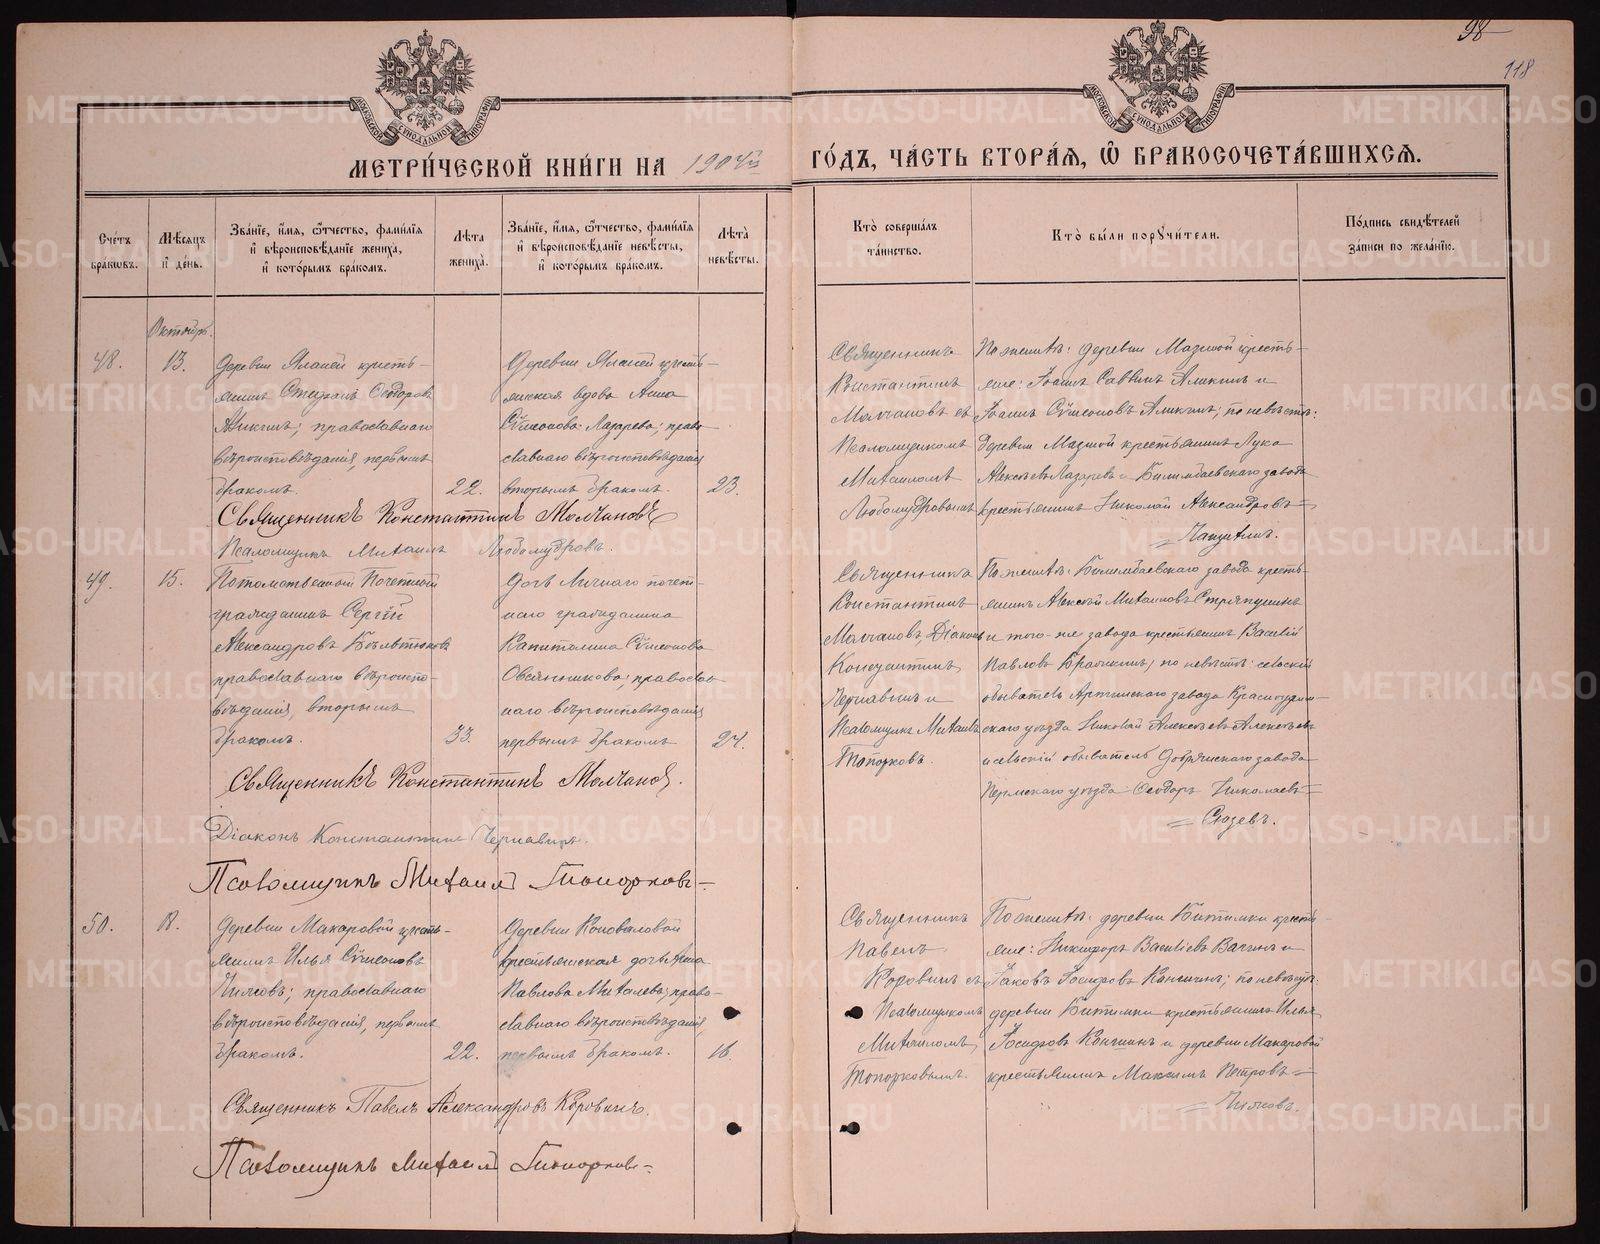 98
118
МЕТРИЧЕСКОЙ КНИГИ НА 1904й ГОДЪ, ЧАСТЬ ВТОРАЯ, Ѡ БРАКОСОЧЕТАВШИХСЯ.
МОСКОВСКОЙ СѴНОДАЛЬНОЙ ТИПОГРАФІИ
МОСКОВСКОЙ СѴНОДАЛЬНОЙ ТИПОГРАФІИ
Счетъ браковъ.
Мѣсяцъ и день.
Званіе, имя, отчество, фамилія
и вѣроисповѣданіе жениха,
и которымъ бракомъ.
Лѣта жениха.
Званіе, имя, отчество, фамилія
и вѣроисповѣданіе невѣсты,
и которымъ бракомъ.
Лѣта невѣсты.
Кто совершалъ
таинство.
Кто были поручители.
Подпись свидѣтелей
записи по желанію.
Октябрь.
48.
13.
Деревни кресть-
янинъ Ѳеодоровъ
Аликинъ; православнаго
вѣроисповѣданія, первымъ
бракомъ.
22.
Деревни кресть-
янская вдова Анна
Сѵмеонова Лазарева; право-
славнаго вѣроисповѣданія
вторымъ бракомъ.
23.
Священникъ
Константинъ
Молчановъ съ
Псаломщикомъ
Михаиломъ
Любомудровымъ
По женихѣ: деревни Мазиной кресть-
яне: Іоаннъ Саввинъ Аликинъ и
Іоаннъ Сѵмеоновъ Аликинъ; по невѣстѣ:
деревни Мазиной крестьянинъ Лука
Алексѣевъ Лазаревъ и Билимбаевскаго завода
крестьянинъ Николай Александровъ=
Священникъ Константинъ Молчановъ
Псаломщикъ Михаилъ Любомудровъ.
49.
15.
Потомственный Почетный
гражданинъ Сергій
Александровъ
православнаго вѣроиспо-
вѣданія, вторымъ
бракомъ.
33.
Дочь Личнаго почет-
наго гражданина
Капитолина Сѵмеонова
Овсянникова; православ-
наго вѣроисповѣданія
первымъ бракомъ
24.
Священникъ
Константинъ
Молчановъ, Діаконъ
Константинъ
Чернавинъ и
Псаломщикъ Михаилъ
Топорковъ.
По женихѣ: Билимбаевскаго завода кресть-
янинъ Алексѣй Михаиловъ Стряпунинъ
и того-же завода крестьянинъ Василій
Павловъ по невѣстѣ: сельскій
обыватель Артинскаго завода Красноуфим-
скаго уѣзда Николай Алексѣевъ Алексѣевъ
и сельскій обыватель Добрянскаго завода
Пермскаго уѣзда Ѳеодоръ Николаевъ=
=Сюзевъ.
Священникъ Константинъ Молчановъ.
Діаконъ Константинъ Чернавинъ.
Псаломщикъ Михаилъ Топорковъ=
50.
Деревни Макаровой кресть-
янинъ Илья Сѵмеоновъ
православнаго
вѣроисповѣданія, первымъ
бракомъ.
22.
Деревни Коноваловой
крестьянская дочь Анна
Павлова Михалева; право-
славнаго вѣроисповѣданія,
первымъ бракомъ.
16.
Священникъ
Павелъ
Коровинъ съ
Псаломщикомъ
Михаиломъ
Топорковымъ.
По женихѣ: деревни Битимки кресть-
яне: Никифоръ Васильевъ Вагинъ и
Іаковъ Іосифовъ по невѣстѣ:
деревни Битимки крестьянинъ Илья
Іосифовъ и деревни Макаровой
крестьянинъ Максимъ Петровъ=
Священникъ Павелъ Александровъ Коровинъ.
Псаломщикъ Михаилъ Топорковъ=
METRIKI.GASO-URAL.RU